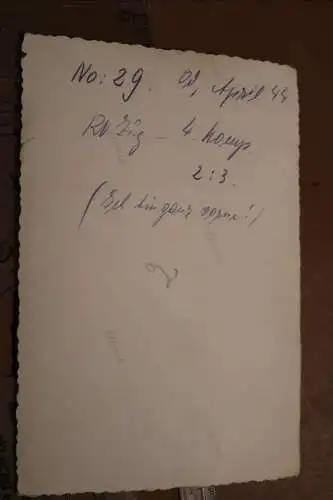 No: 29. Od, April 44
Rv. Zug – 4. Komp
2:3.
(Ich bin ganz vorne!)
2